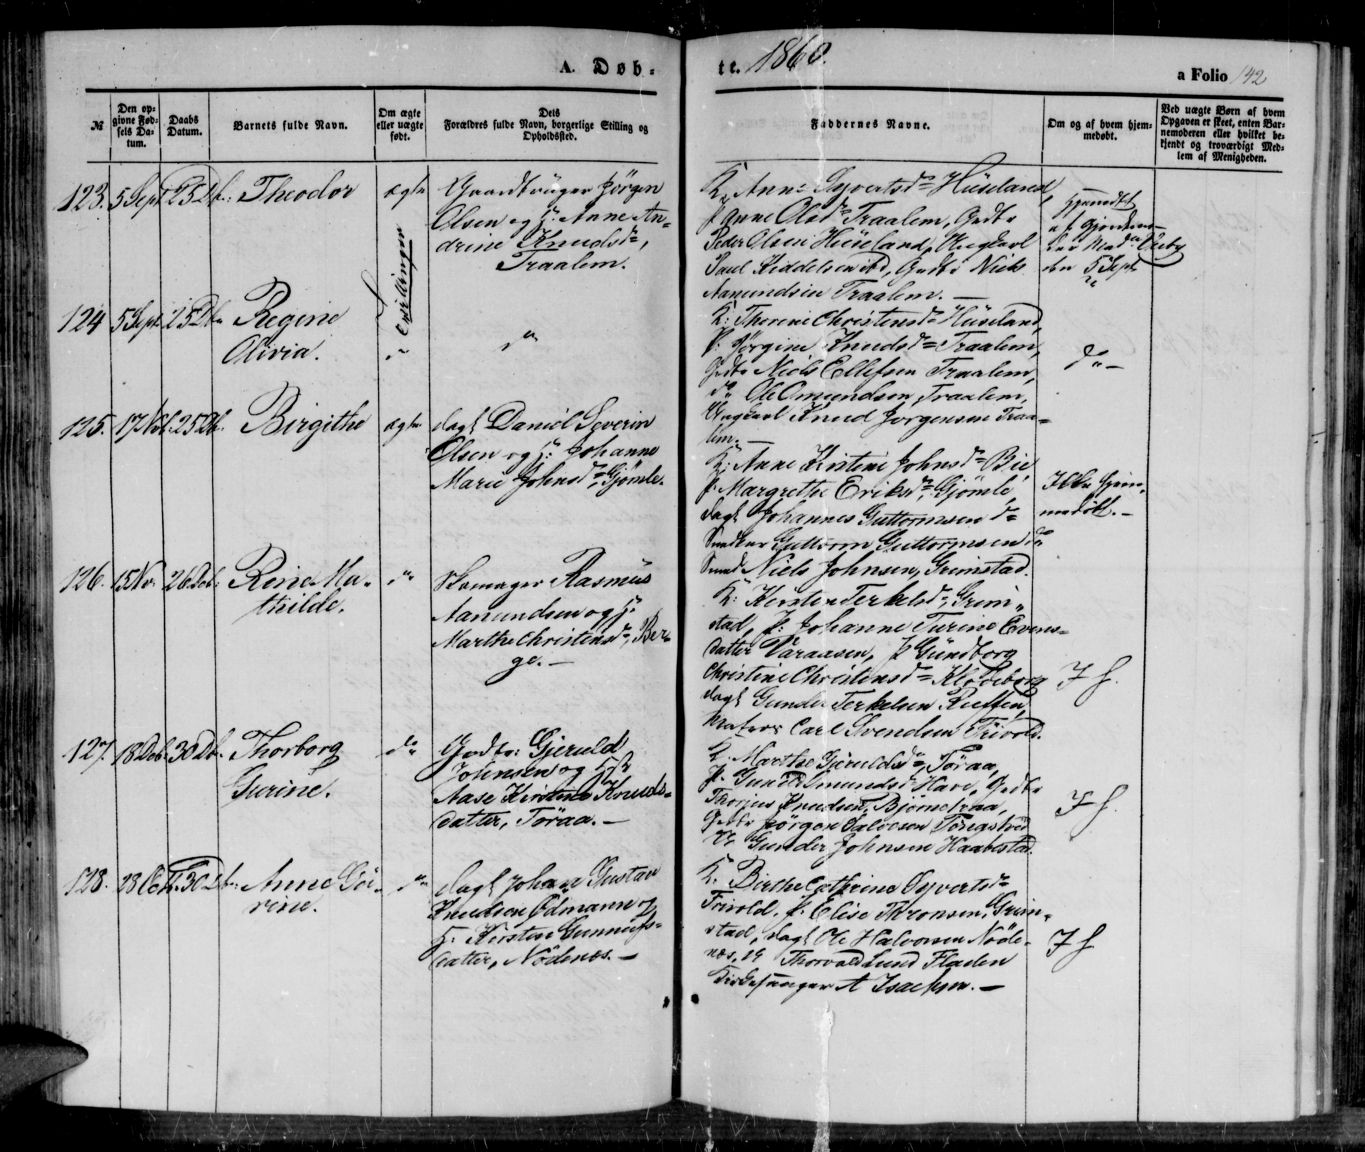 A. Døb-
te. 1860.
a Folio 142
№
Den op-
givne Fød-
sels Da-
tum.
Daabs
Datum.
Barnets fulde Navn.
Om ægte
eller uægte
født.
Dets
Forældres fulde Navn, borgerlige Stilling og
Opholdssted.
Faddernes Navne.
Om og af hvem hjem-
medøbt.
Ved uægte Børn af hvem
Opgaven er skeet, enten Bar-
nemoderen eller hvilket be-
kjendt og troværdigt Med-
lem af Menigheden.
123. 5 Sept 25 Db: Theodor ægte
Gaardbruger Jørgen
Olsen og H: Anne An-
drine Knudsdr,
Traalem.
K. Anne Syvertsdr Hüseland,
P. Anne Olsdr Traalem, Gdbr
Peder Olsen Hüseland, Ungkarl
Paul Kiddelsen ibd, Gdbr Niels
Aanundsen Traalem. —
Hjemdøbt
af Gjordemo-
der Mad
den 5 Sept
Tvillinger
124 5 Sept 25 Db Regine
Olivia.
do
K: Therine Christensdr Hüseland,
P. Jørgine Knudsdr Traalem,
Gdbr Niels Ellefsen Traalem,
do Ole Omundsen Traalem,
Ungkarl Knud Jørgensen Traa-
lem. —
do —
125. 17 Nvb. 25 Db. Birgithe ægte
dagl Daniel Severin
Olsen og H: Johanne
Marie Johnsdr, Gjømle.
K: Anne Kirstine Johnsdr Bie
P. Margrethe Eriksdr, Gjømle,
dagl Johannes Guttormsen do
Guttorm Guttormsen do
Niels Johnsen, Grimstad.
Ikke hjem-
medøbt. —
126. 15 Nv. 26 Deb: Rene Ma-
thilde.
do
Skomager Rasmus
Aanundsen og H:
Marthe Christensdr, Ber-
ge. —
K: Kirsten Terkelsdr, Grim-
stad, P: Johanne Turine Evens-
datter Varaasen, P Gundborg
Christine Christensdr
dagl Gunder Terkelsen
Matros Carl Svendsen Frivold.
I H.
127. 18 Deb. 30 Db. Thorborg
Gurine.
do
Gdbr: Gjeruld
Johnsen og Hst
Aase Kirstine Knuds-
datter, Töraa. —
K. Marthe Gjeruldsdr, Töraa,
Have, Gdbr
Knudsen, Bjørnetraa,
Gdbr Jørgen Salvesen
Do Gunder Johnsen Haabestad.
I H.
128. 28 Oct. 30 Db: Anne Gö-
rine.
do
dagl Johan Gustav
Knudsen Ödmann og
H. Kirstine Gunnufs-
datter, Nödenes. —
K. Birthe Cathrine Syvertsdr
Frivold, P. Elise Thronsen, Grim-
stad, dagl Ole Halvorsen Nöde-
næs, og Thorvald Lund Fladen
Kirkesanger A Isachsen. —
I H